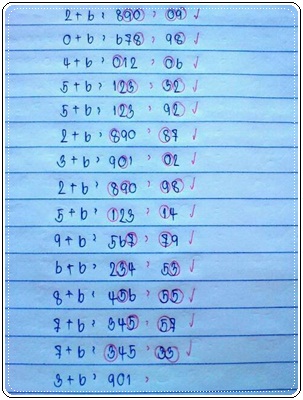 2 + b , 890 , 09 ✓
0 + b , b78 , 98 ✓
4 + b , 012 , 0b ✓
5 + b , 123 , 32 ✓
5 + b , 123 , 92 ✓
2 + b , 890 , 87 ✓
3 + b , 901 , 02 ✓
2 + b , 890 , 98 ✓
5 + b , 123 , 14 ✓
9 + b , 5b7 , 79 ✓
b + b , 234 , 53 ✓
8 + b , 45b , 55 ✓
7 + b , 345 , 57 ✓
7 + b , 345 , 33 ✓
3 + b , 901 ,